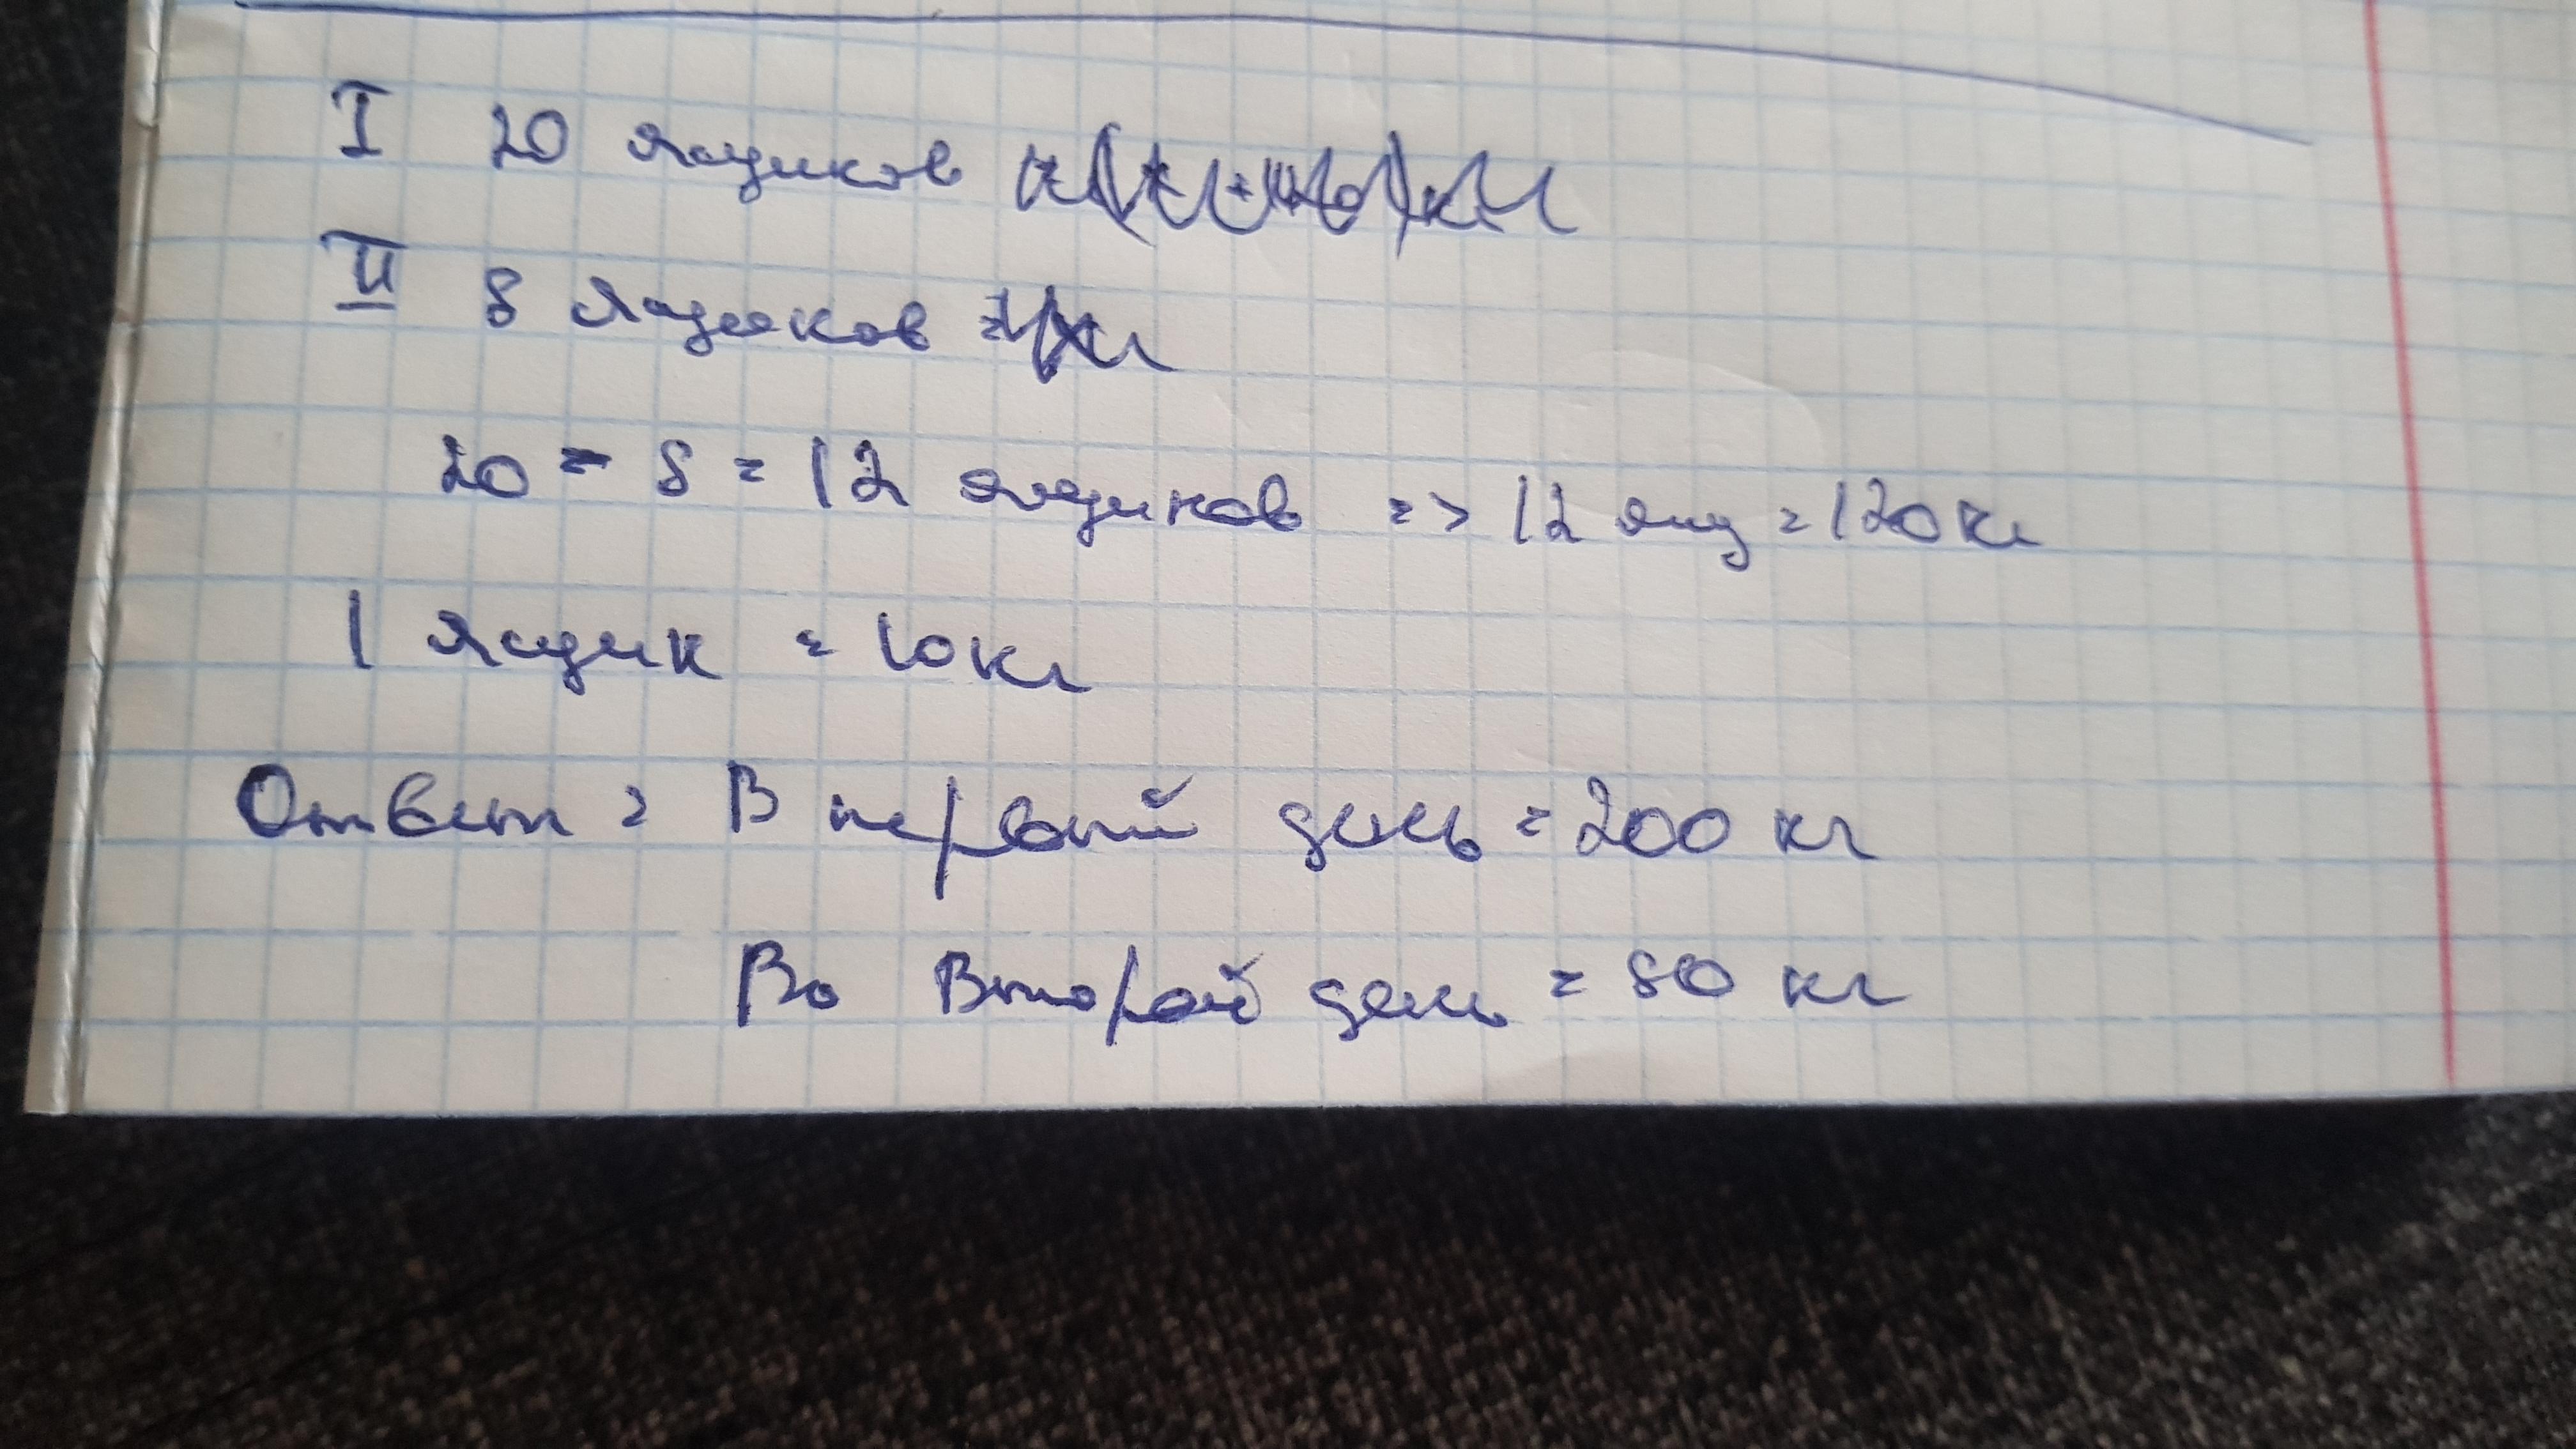 I 20 ящиков
II 8 ящиков
20 - 8 = 12 ящиков => 12 ящ = 120 кг
1 ящик = 10 кг
Ответ: В первый день = 200 кг
Во второй день = 80 кг